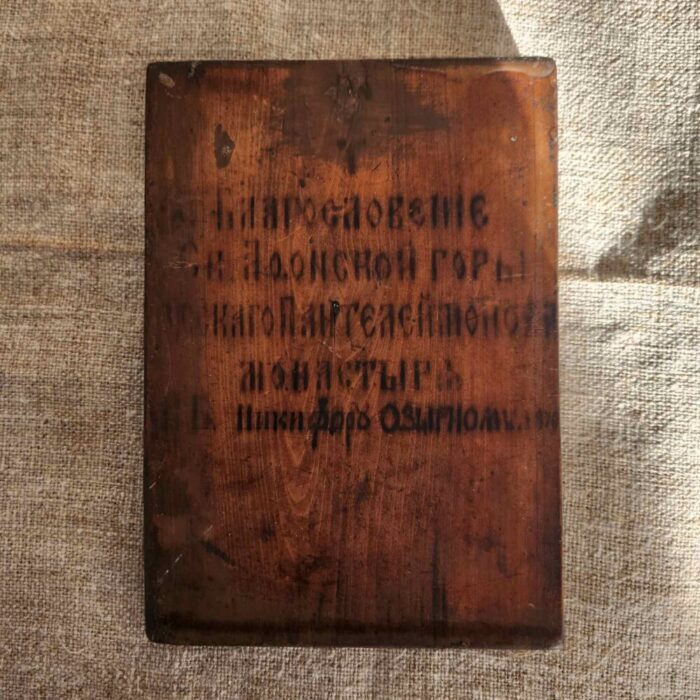 Благословеніе
Аѳонской горы
Пантелеймонова
монастырѧ
Никифору Озырному